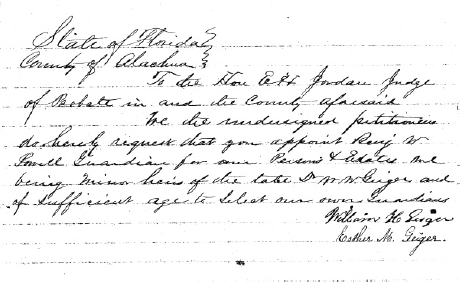 State of Florida
County of Alachua
To the Hon E H Jordan Judge
of Probate in and the County aforesaid
We the undersigned petitioners
do hereby request that you appoint Benj W
Powell Guardian for our Persons & Estates we
being minor heirs of the late Dr W W Geiger and
of sufficient age to select our own Guardians
William H Geiger
Esther M. Geiger.